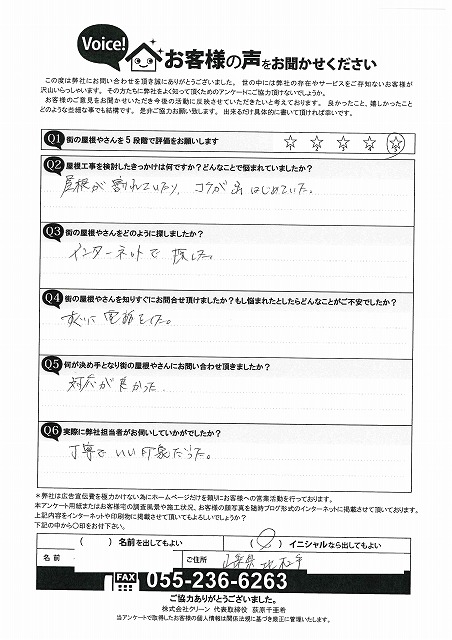 Voice!
お客様の声をお聞かせください
この度は弊社にお問い合わせを頂き誠にありがとうございました。 世の中には弊社の存在やサービスをご存知ないお客様が
沢山いらっしゃいます。 その方たちに弊社をよく知って頂くためのアンケートにご協力頂けないでしょうか。
お客様のご意見をお聞かせいただき今後の活動に反映させていただきたいと考えております。 良かったこと、嬉しかったこと
どのような些細な事でも結構です。 是非ご協力お願い致します。 出来るだけ具体的に書いて頂ければ幸いです。
Q1 街の屋根やさんを5段階で評価をお願いします
Q2 屋根工事を検討したきっかけは何ですか?どんなことで悩まれていましたか?
屋根が割れていたり、コケが出はじめていた。
Q3 街の屋根やさんをどのように探しましたか?
インターネットで探した。
Q4 街の屋根やさんを知りすぐにお問合せ頂けましたか?もし悩まれたとしたらどんなことがご不安でしたか?
すぐに電話をした。
Q5 何が決め手となり街の屋根やさんにお問い合わせ頂きましたか?
対応が良かった
Q6 実際に弊社担当者がお伺いしていかがでしたか?
丁寧でいい印象だった。
*弊社は広告宣伝費を極力かけない為にホームページだけを頼りにお客様への営業活動を行っております。
本アンケート用紙またはお客様宅の調査風景や施工状況、お客様の顔写真を随時ブログ形式のインターネットに掲載させて頂いております。
上記内容をインターネットや印刷物に掲載させて頂いてもよろしいでしょうか?
下記の中から〇印をお付下さい。
( ) 名前を出してもよい ( ○ ) イニシャルなら出してもよい
名前 ご住所 山梨県
FAX 055-236-6263
ご協力ありがとうございました。
株式会社クリーン 代表取締役 荻原千亜希
当アンケートで取得したお客様の個人情報は関係法規に基づき厳正に管理いたします。